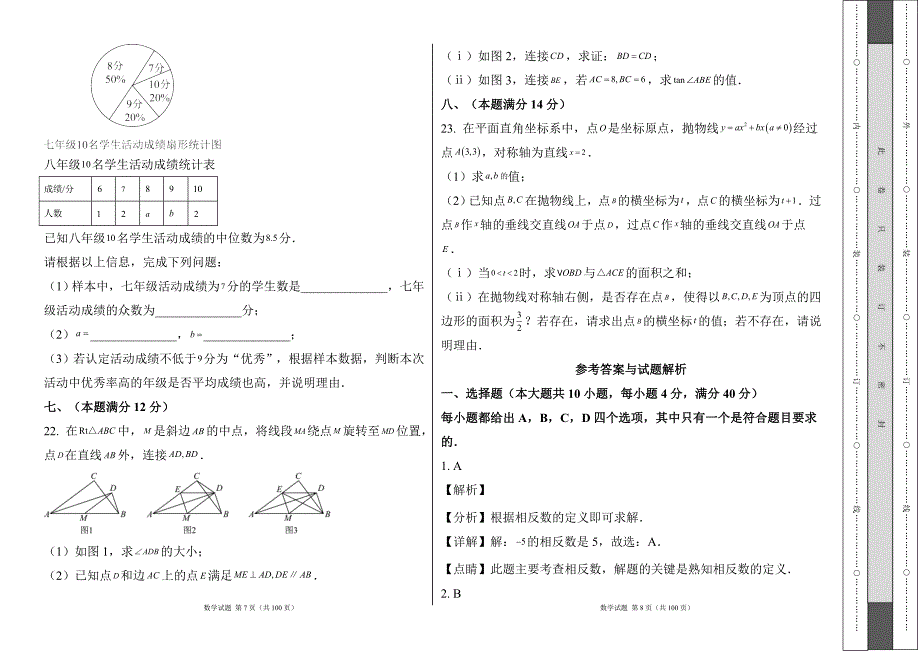 8分
50%
7分
10分
20%
9分
20%
七年级10名学生活动成绩扇形统计图
八年级10名学生活动成绩统计表
成绩/分 6 7 8 9 10
人数 1 2 a b 2
已知八年级10名学生活动成绩的中位数为8.5分.
请根据以上信息，完成下列问题：
（1）样本中，七年级活动成绩为7分的学生数是______________，七年
级活动成绩的众数为______________分；
（2）a=______________，b=______________；
（3）若认定活动成绩不低于9分为“优秀”，根据样本数据，判断本次
活动中优秀率高的年级是否平均成绩也高，并说明理由.
七、（本题满分12分）
22. 在Rt△ABC中，M是斜边AB的中点，将线段MA绕点M旋转至MD位置，
点D在直线AB外，连接AD,BD.
A B C D M
图1
A B C D E M
图2
A B C D E M
图3
（1）如图1，求∠ADB的大小；
（2）已知点D和边AC上的点E满足ME⊥AD,DE∥AB.
数学试题 第7页（共100页）
（ⅰ）如图2，连接CD，求证：BD=CD；
（ⅱ）如图3，连接BE，若AC=8,BC=6，求tan∠ABE的值.
八、（本题满分14分）
23. 在平面直角坐标系中，点O是坐标原点，抛物线y=ax²+bx(a≠0)经过
点A(3,3)，对称轴为直线x=2.
（1）求a,b的值；
（2）已知点B,C在抛物线上，点B的横坐标为t，点C的横坐标为t+1.过
点B作x轴的垂线交直线OA于点D，过点C作x轴的垂线交直线OA于点
E.
（ⅰ）当0<t<2时，求∨OBD与△ACE的面积之和；
（ⅱ）在抛物线对称轴右侧，是否存在点B，使得以B,C,D,E为顶点的四
边形的面积为3/2？若存在，请求出点B的横坐标t的值；若不存在，请说
明理由.
参考答案与试题解析
一、选择题（本大题共10小题，每小题4分，满分40分）
每小题都给出A，B，C，D四个选项，其中只有一个是符合题目要求
的．
1. A
【解析】
【分析】根据相反数的定义即可求解．
【详解】解：-5的相反数是5，故选：A．
【点睛】此题主要考查相反数，解题的关键是熟知相反数的定义．
2. B
数学试题 第8页（共100页）
内 装 订 线
此 卷 只 装 订 不 密 封
外 装 订 线